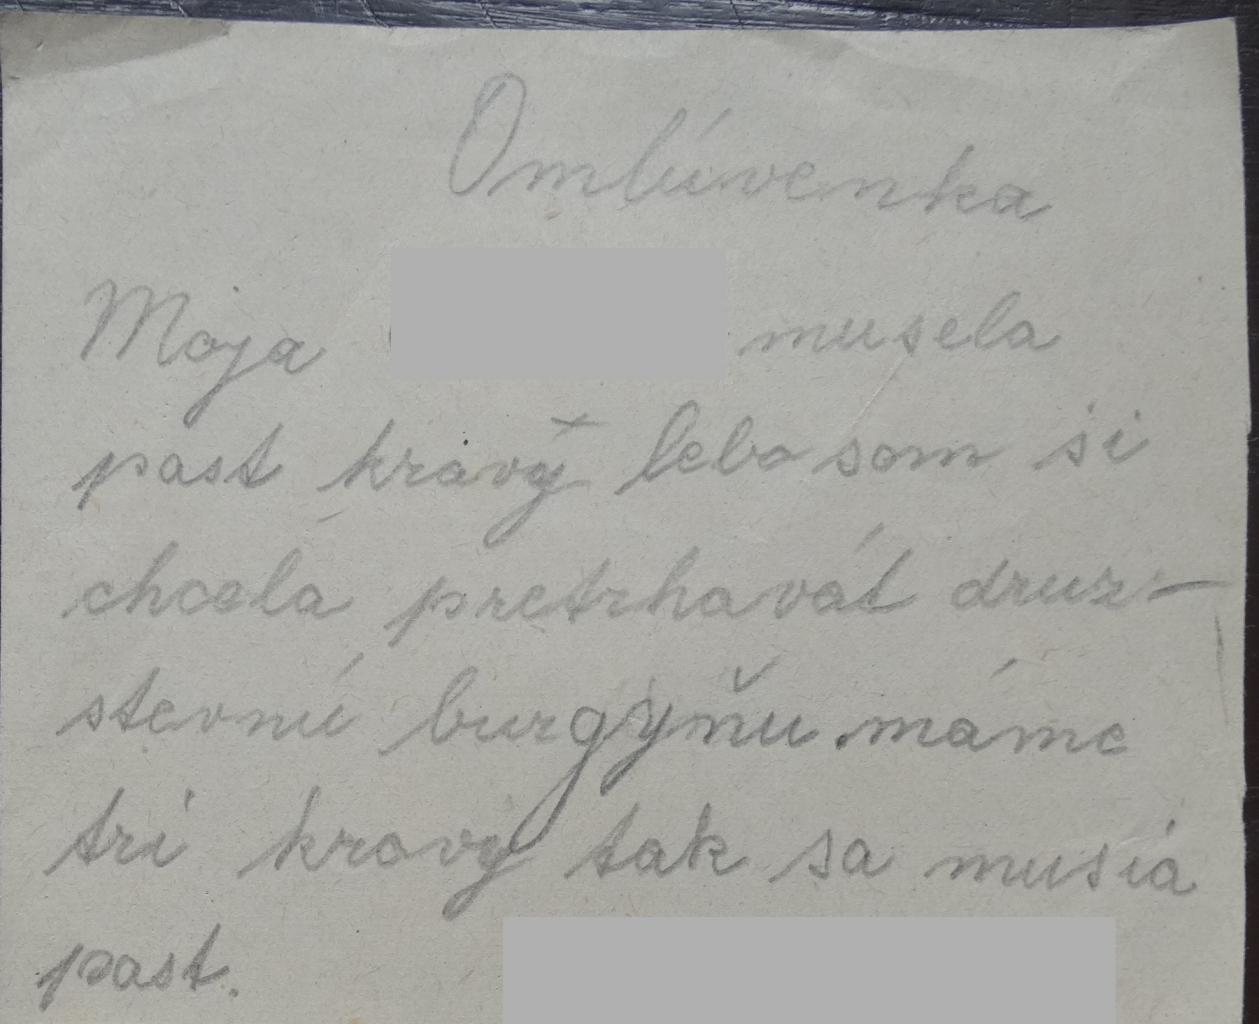 Omlúvenka
Moja musela
past kravý lebo som si
chcela pretrhavát druz-
stevnú burgyňu. máme
tri kravy tak sa musia
past.